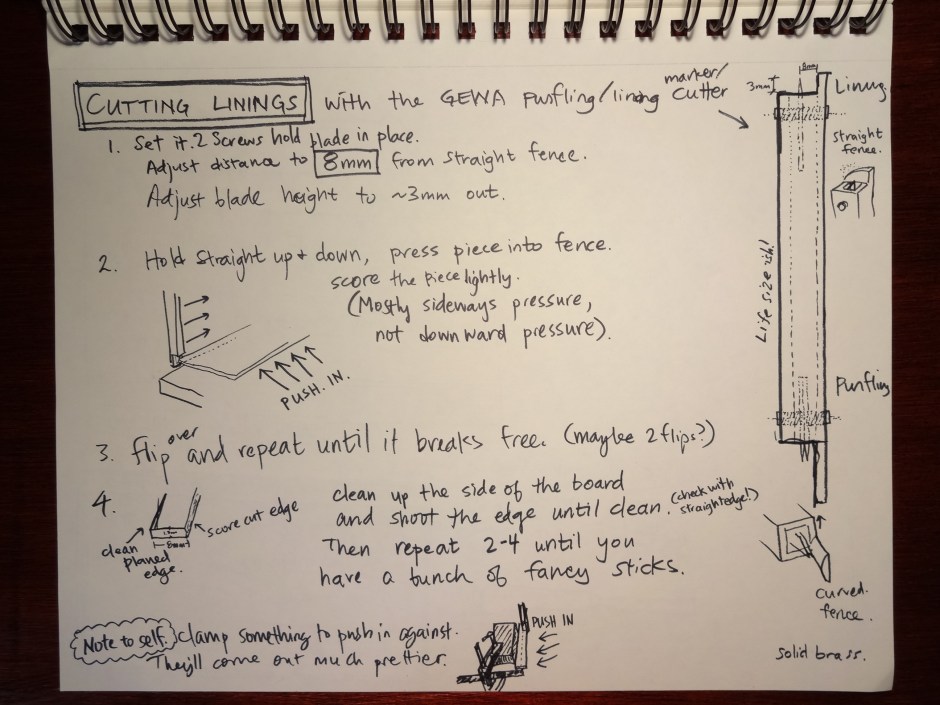 CUTTING LININGS with the GEWA purfling/lining marker/cutter
1. Set it. 2 screws hold blade in place.
Adjust distance to 8mm from straight fence.
Adjust blade height to ~3mm out.
2. Hold straight up + down, press piece into fence.
score the piece lightly.
(Mostly sideways pressure,
not downward pressure).
PUSH. IN.
3. Flip over and repeat until it breaks free. (maybe 2 flips?)
4. clean up the side of the board
and shoot the edge until clean. (check with straightedge!)
Then repeat 2-4 until you
have a bunch of fancy sticks.
score cut edge
clean planed edge.
8mm
Note to self. Clamp something to push in against.
They'll come out much prettier.
PUSH IN
8mm
3mm
Lining
straight fence.
Life size ish!
Purfling
curved fence.
solid brass.